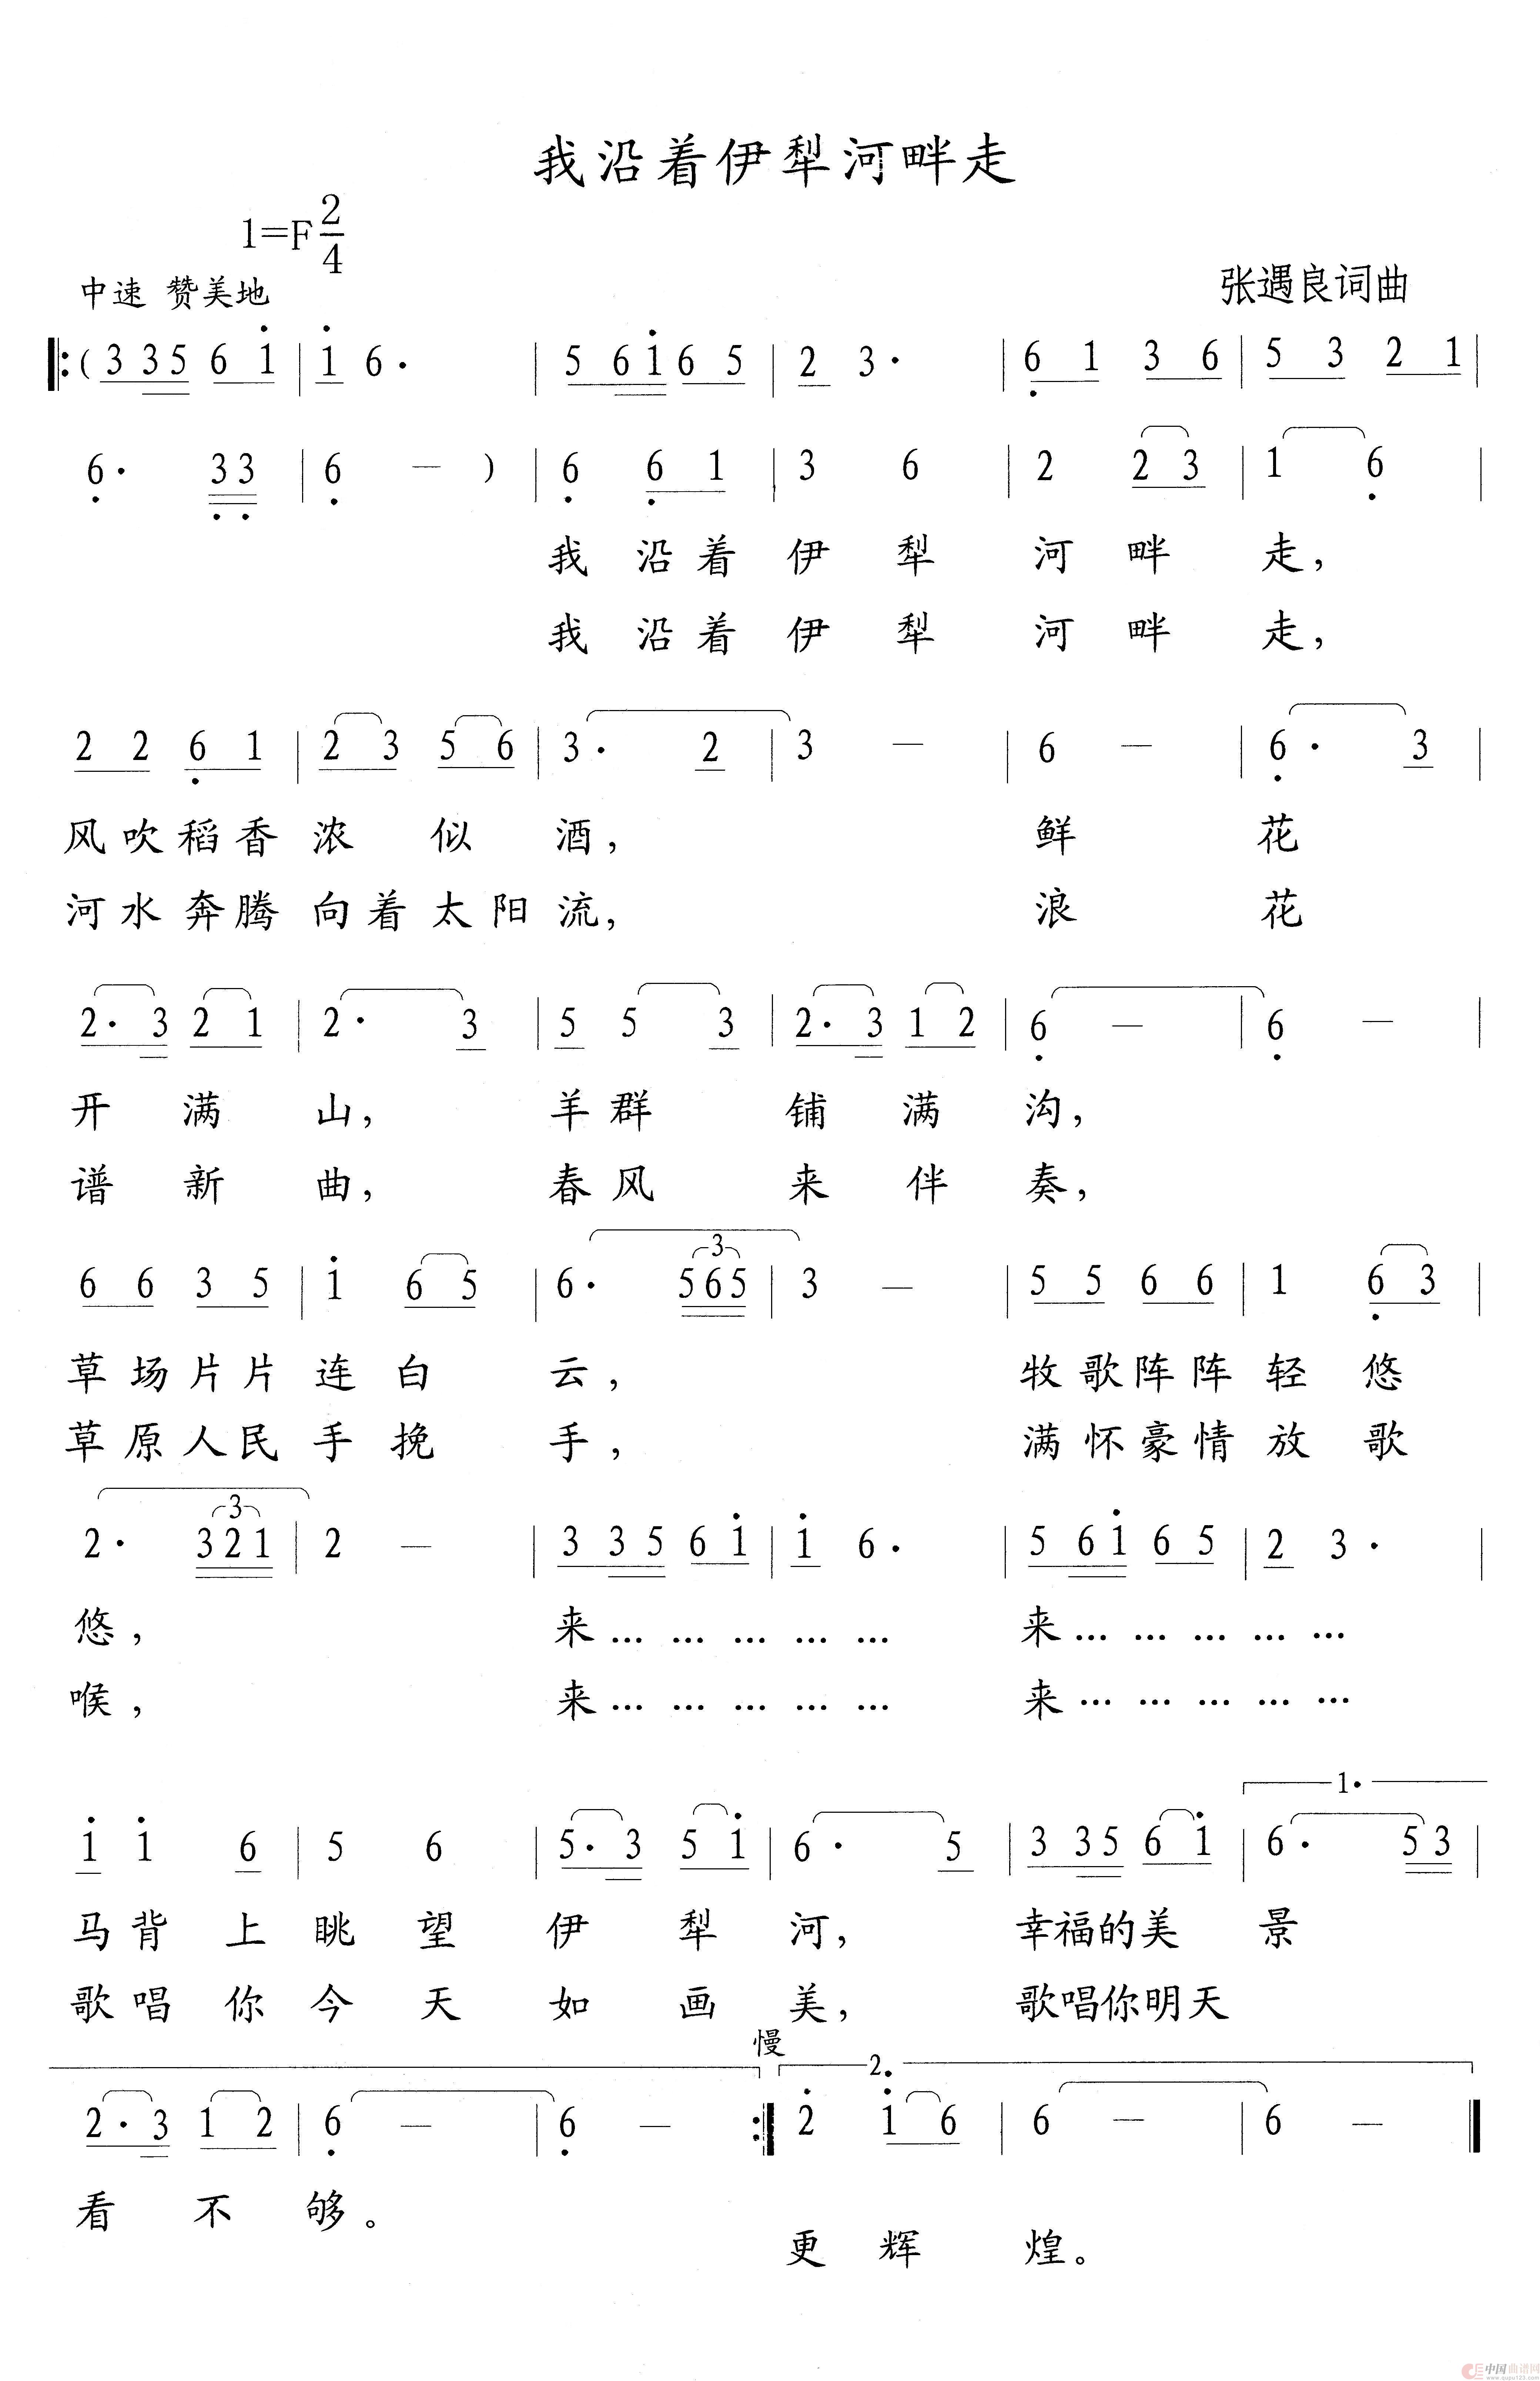 我沿着伊犁河畔走
1=F 2/4
中速 赞美地
张遇良词曲
‖:( 3 3 5 6 i̇ | i̇ 6· | 5 6 i̇ 6 5 | 2 3· | 6̣ 1 3 6 | 5 3 2 1 |
6̣· 3̣ 3̣ | 6̣ — ) | 6̣ 6̣ 1 | 3 6 | 2 2 3 | 1 6̣ |
我 沿 着 伊 犁 河 畔 走，
我 沿 着 伊 犁 河 畔 走，
2 2 6̣ 1 | 2 3 5 6 | 3· 2 | 3 — | 6 — | 6̣· 3 |
风 吹 稻 香 浓 似 酒， 鲜 花
河 水 奔 腾 向 着 太 阳 流， 浪 花
2· 3 2 1 | 2· 3 | 5 5 3 | 2· 3 1 2 | 6̣ — | 6̣ — |
开 满 山， 羊 群 铺 满 沟，
谱 新 曲， 春 风 来 伴 奏，
3
6 6 3 5 | i̇ 6 5 | 6· 5 6 5 | 3 — | 5 5 6 6 | 1 6̣ 3 |
草 场 片 片 连 白 云， 牧 歌 阵 阵 轻 悠
草 原 人 民 手 挽 手， 满 怀 豪 情 放 歌
3
2· 3 2 1 | 2 — | 3 3 5 6 i̇ | i̇ 6· | 5 6 i̇ 6 5 | 2 3· |
悠， 来… … … … … 来… … … … …
喉， 来… … … … … 来… … … … …
1·
i̇ i̇ 6 | 5 6 | 5· 3 5 i̇ | 6· 5 | 3 3 5 6 i̇ | 6· 5 3 |
马 背 上 眺 望 伊 犁 河， 幸福的美 景
歌 唱 你 今 天 如 画 美， 歌唱你明天
慢
2.
2· 3 1 2 | 6̣ — | 6̣ — :‖ 2̇ i̇ 6 | 6 — | 6 — ‖
看 不 够。
更 辉 煌。
中国曲谱网
www.qupu123.com